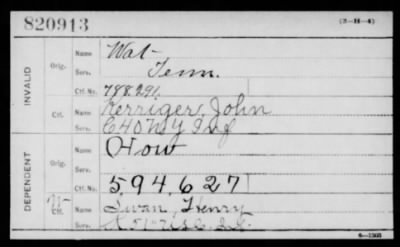 820913
(3-H-4)
INVALID
Orig.
Name
Wat-
Serv.
Tenn.
Ctf. No.
788.291.
Ctf.
Name
Kerriger, John
Serv.
C 40 N Y Inf
DEPENDENT
Orig.
Name
How
Serv.
Ctf. No.
594,627
Ctf.
Name
Swan, Henry
Serv.
Inf.
6-1363